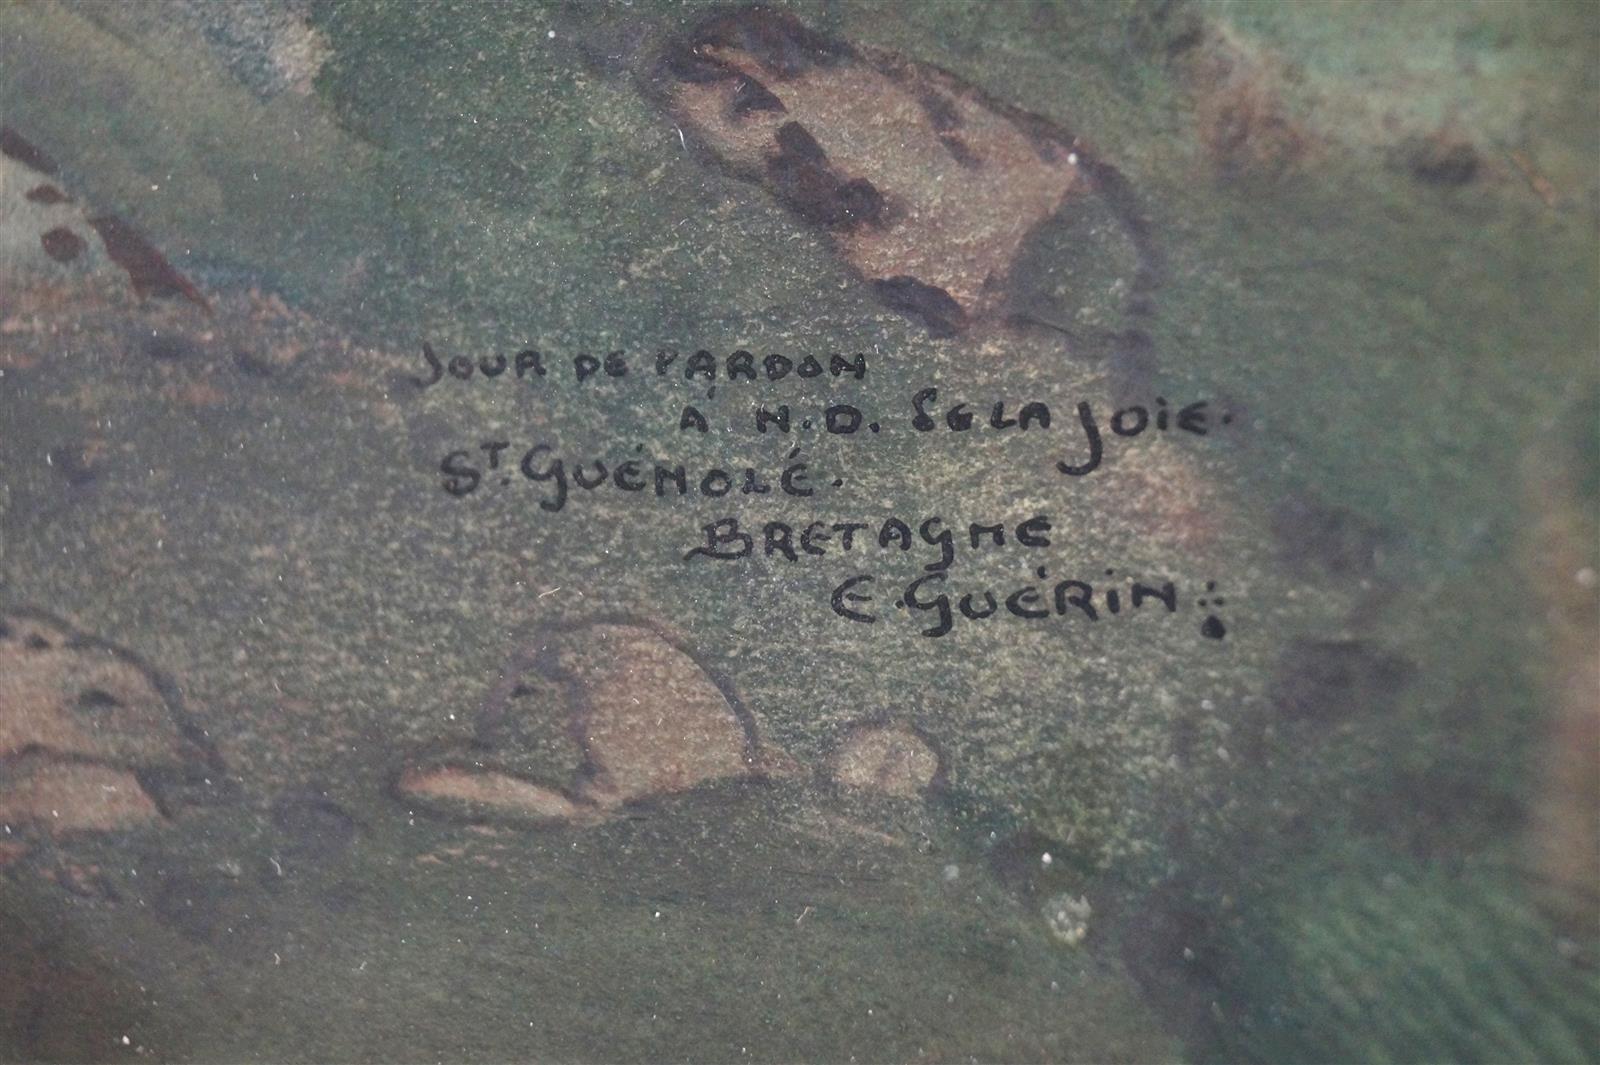 JOUR DE PARDON
À N.D. DE LA JOIE.
ST. GUÉNOLÉ.
BRETAGNE
E. GUÉRIN